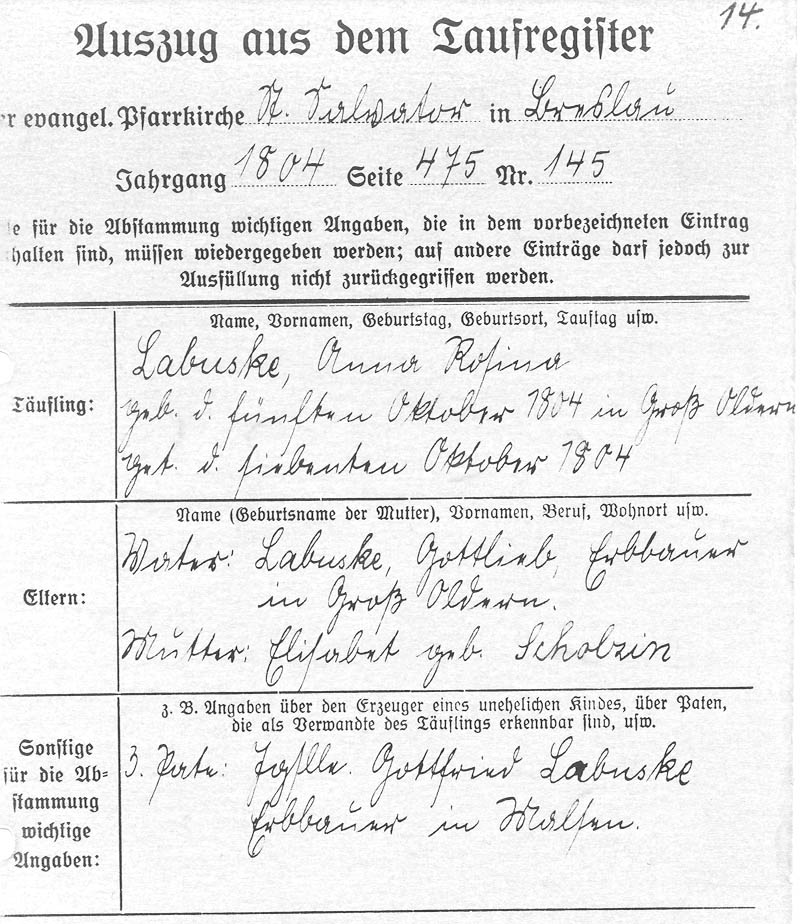 14.
Auszug aus dem Taufregister
r evangel. Pfarrkirche St. Salvator in Breslau
Jahrgang 1804 Seite 475 Nr. 145
e für die Abstammung wichtigen Angaben, die in dem vorbezeichneten Eintrag
halten sind, müssen wiedergegeben werden; auf andere Einträge darf jedoch zur
Ausfüllung nicht zurückgegriffen werden.
Name, Vornamen, Geburtstag, Geburtsort, Tauftag usw.
Täufling:
Labuske, Anna Rosina
geb. d. fünften Oktober 1804 in Groß Oldern
get. d. siebenten Oktober 1804
Name (Geburtsname der Mutter), Vornamen, Beruf, Wohnort usw.
Eltern:
Vater: Labuske, Gottlieb, Erbbauer
in Groß Oldern.
Mutter: Elisabet geb. Scholzin
z. B. Angaben über den Erzeuger eines unehelichen Kindes, über Paten,
die als Verwandte des Täuflings erkennbar sind, usw.
Sonstige
für die Ab=
stammung
wichtige
Angaben:
3. Pate: Gottfried Labuske
Erbbauer in Malsen.